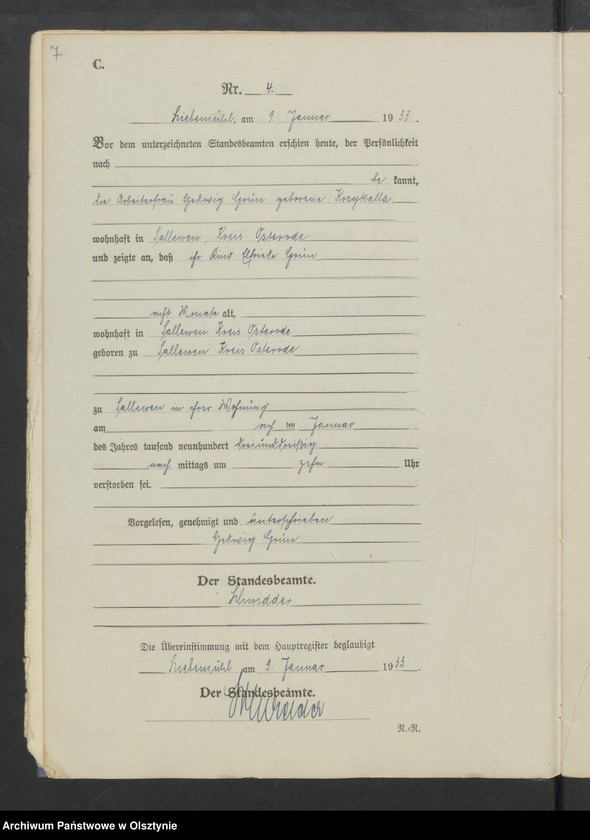 7
C.
Nr. 4.
Liebemühl, am 9. Januar 1933.
Vor dem unterzeichneten Standesbeamten erschien heute, der Persönlichkeit
nach
be kannt,
die Arbeiterfrau Hedwig Grün geborene
wohnhaft in Sallewen, Kreis Osterode
und zeigte an, daß ihr Kind Elfriede Grün
acht Monate alt,
wohnhaft in Sallewen Kreis Osterode
geboren zu Sallewen Kreis Osterode
zu Sallewen in ihrer Wohnung
am ten Januar
des Jahres tausend neunhundert dreiunddreißig
nach mittags um zehn Uhr
verstorben sei.
Vorgelesen, genehmigt und unterschrieben
Hedwig Grün
Der Standesbeamte.
Die Übereinstimmung mit dem Hauptregister beglaubigt
Liebemühl am 9. Januar 1933.
Der Standesbeamte.
R.-R.
Archiwum Państwowe w Olsztynie